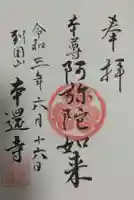 奉拝
本尊 阿弥陀如来
令和三年六月十六日
到岸山 本還寺